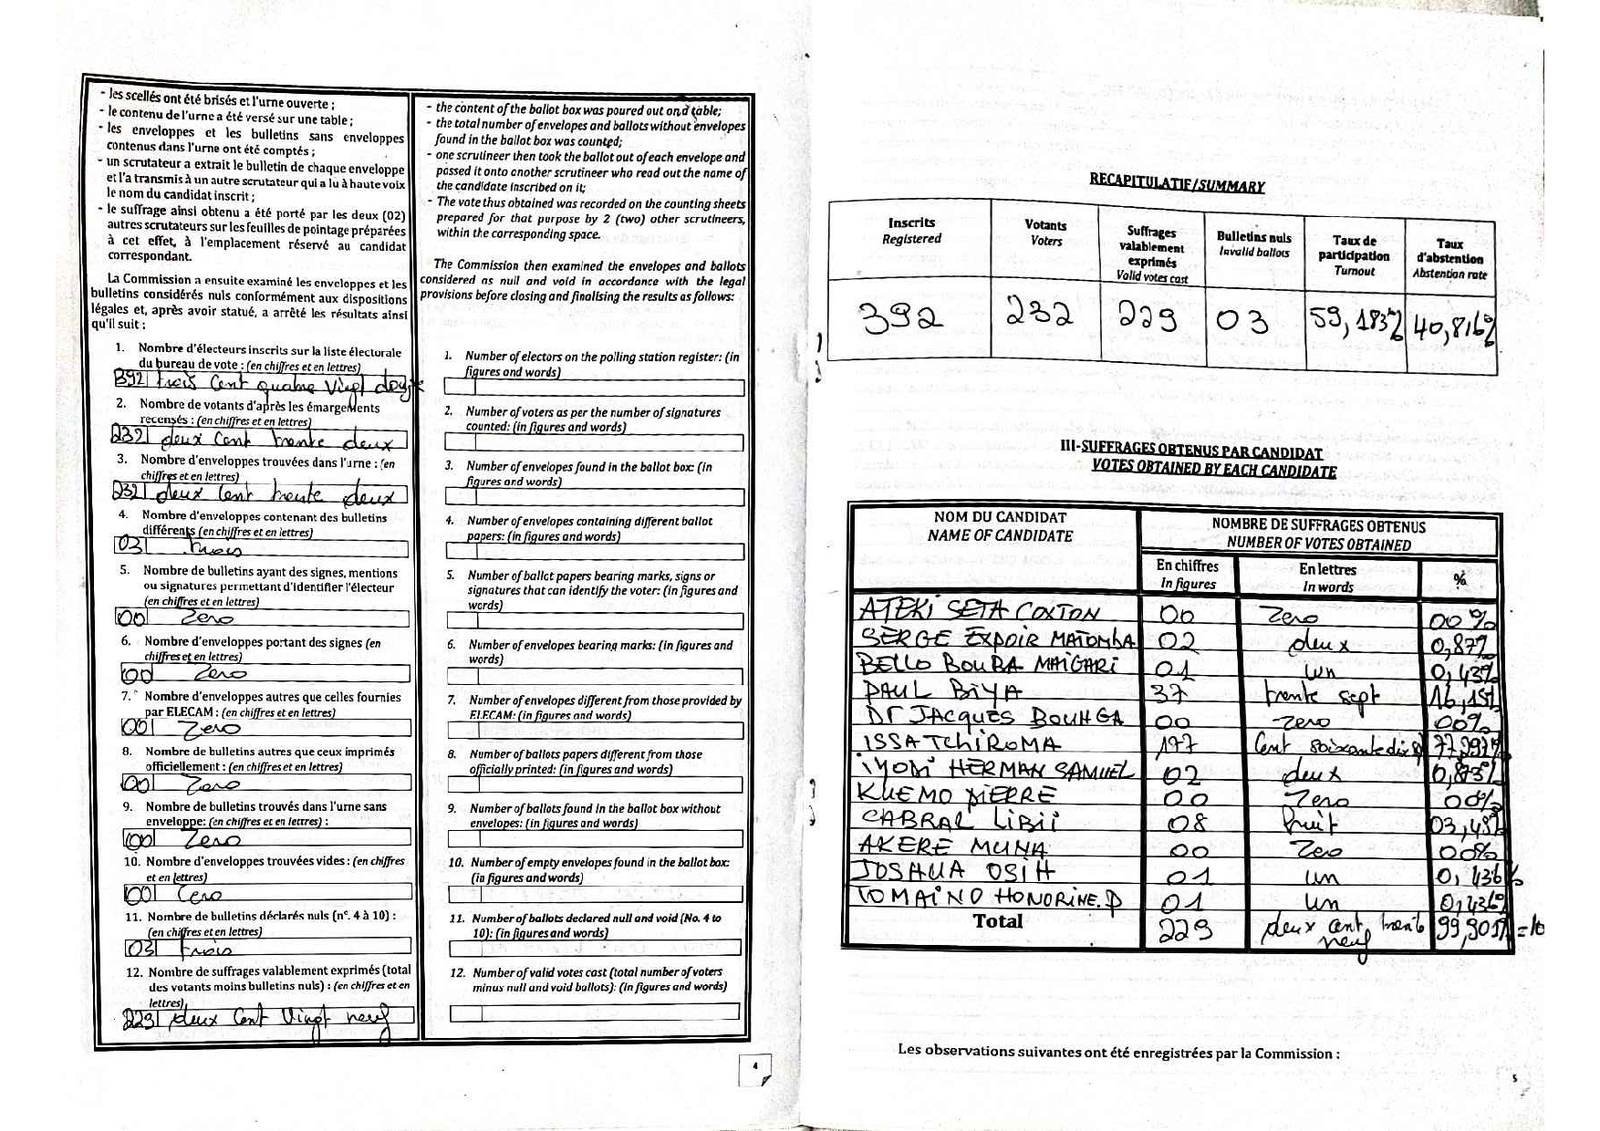 - les scellés ont été brisés et l'urne ouverte ;
- le contenu de l'urne a été versé sur une table ;
- les enveloppes et les bulletins sans enveloppes
contenus dans l'urne ont été comptés ;
- un scrutateur a extrait le bulletin de chaque enveloppe
et l'a transmis à un autre scrutateur qui a lu à haute voix
le nom du candidat inscrit ;
- le suffrage ainsi obtenu a été porté par les deux (02)
autres scrutateurs sur les feuilles de pointage préparées
à cet effet, à l'emplacement réservé au candidat
correspondant.
La Commission a ensuite examiné les enveloppes et les
bulletins considérés nuls conformément aux dispositions
légales et, après avoir statué, a arrêté les résultats ainsi
qu'il suit :
1. Nombre d'électeurs inscrits sur la liste électorale
du bureau de vote : (en chiffres et en lettres)
392 trois cent quatre vingt douze
2. Nombre de votants d'après les émargements
recensés : (en chiffres et en lettres)
232 deux cent trente deux
3. Nombre d'enveloppes trouvées dans l'urne : (en
chiffres et en lettres)
232 deux cent trente deux
4. Nombre d'enveloppes contenant des bulletins
différents (en chiffres et en lettres)
03 trois
5. Nombre de bulletins ayant des signes, mentions
ou signatures permettant d'identifier l'électeur
(en chiffres et en lettres)
00 zero
6. Nombre d'enveloppes portant des signes (en
chiffres et en lettres)
00 zero
7. Nombre d'enveloppes autres que celles fournies
par ELECAM : (en chiffres et en lettres)
00 zero
8. Nombre de bulletins autres que ceux imprimés
officiellement : (en chiffres et en lettres)
00 zero
9. Nombre de bulletins trouvés dans l'urne sans
enveloppe: (en chiffres et en lettres) :
00 zero
10. Nombre d'enveloppes trouvées vides : (en chiffres
et en lettres)
00 zero
11. Nombre de bulletins déclarés nuls (n°. 4 à 10) :
(en chiffres et en lettres)
03 trois
12. Nombre de suffrages valablement exprimés (total
des votants moins bulletins nuls) : (en chiffres et en
lettres)
229 deux cent vingt neuf
- the content of the ballot box was poured out on a table;
- the total number of envelopes and ballots without envelopes
found in the ballot box was counted;
- one scrutineer then took the ballot out of each envelope and
passed it onto another scrutineer who read out the name of
the candidate inscribed on it;
- The vote thus obtained was recorded on the counting sheets
prepared for that purpose by 2 (two) other scrutineers,
within the corresponding space.
The Commission then examined the envelopes and ballots
considered as null and void in accordance with the legal
provisions before closing and finalising the results as follows:
1. Number of electors on the polling station register: (in
figures and words)
2. Number of voters as per the number of signatures
counted: (in figures and words)
3. Number of envelopes found in the ballot box: (in
figures and words)
4. Number of envelopes containing different ballot
papers: (in figures and words)
5. Number of ballot papers bearing marks, signs or
signatures that can identify the voter: (in figures and
words)
6. Number of envelopes bearing marks: (in figures and
words)
7. Number of envelopes different from those provided by
ELECAM: (in figures and words)
8. Number of ballots papers different from those
officially printed: (in figures and words)
9. Number of ballots found in the ballot box without
envelopes: (in figures and words)
10. Number of empty envelopes found in the ballot box:
(in figures and words)
11. Number of ballots declared null and void (No. 4 to
10): (in figures and words)
12. Number of valid votes cast (total number of voters
minus null and void ballots): (in figures and words)
4
RECAPITULATIF/SUMMARY
Inscrits Registered | Votants Voters | Suffrages valablement exprimés Valid votes cast | Bulletins nuls Invalid ballots | Taux de participation Turnout | Taux d'abstention Abstention rate
392 232 229 03 59,183% 40,816%
III-SUFFRAGES OBTENUS PAR CANDIDAT
VOTES OBTAINED BY EACH CANDIDATE
NOM DU CANDIDAT NOMBRE DE SUFFRAGES OBTENUS
NAME OF CANDIDATE NUMBER OF VOTES OBTAINED
En chiffres En lettres %
In figures In words
ATEKI SETA COXTON 00 Zero 00%
SERGE EXPOIR MATOMBA 02 deux 0,87%
BELLO BOUBA MAIGARI 01 un 0,43%
PAUL BIYA 37 trente sept 16,15%
Dr JACQUES BOUHGA 00 Zero 00%
ISSA TCHIROMA 177 Cent soixante dix
IYODI HERMAN SAMUEL 02 deux 0,873%
KUEMO PIERRE 00 Zero 00%
CABRAL LIBII 08 huit 03,49%
AKERE MUNA 00 Zero 00%
JOSHUA OSIH 01 un 0,436%
TOMAINO HONORINE.D 01 un 0,436%
Total 229 deux cent trente neuf 99,901%
Les observations suivantes ont été enregistrées par la Commission :
5